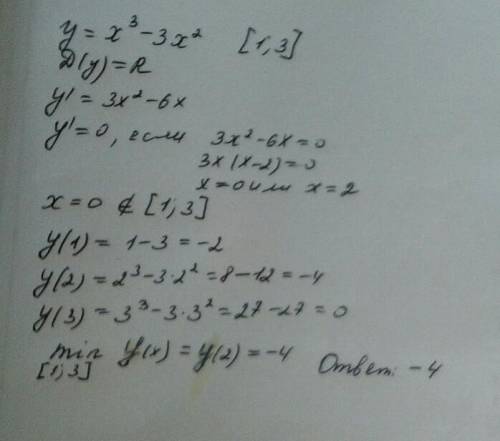 y = x³ - 3x² [1,3]
D(y) = R
y' = 3x² - 6x
y' = 0, если 3x² - 6x = 0
3x(x-2) = 0
x = 0 или x = 2
x = 0 ∉ [1;3]
y(1) = 1 - 3 = -2
y(2) = 2³ - 3·2² = 8 - 12 = -4
y(3) = 3³ - 3·3² = 27 - 27 = 0
min y(x) = y(2) = -4 Ответ: -4
[1;3]